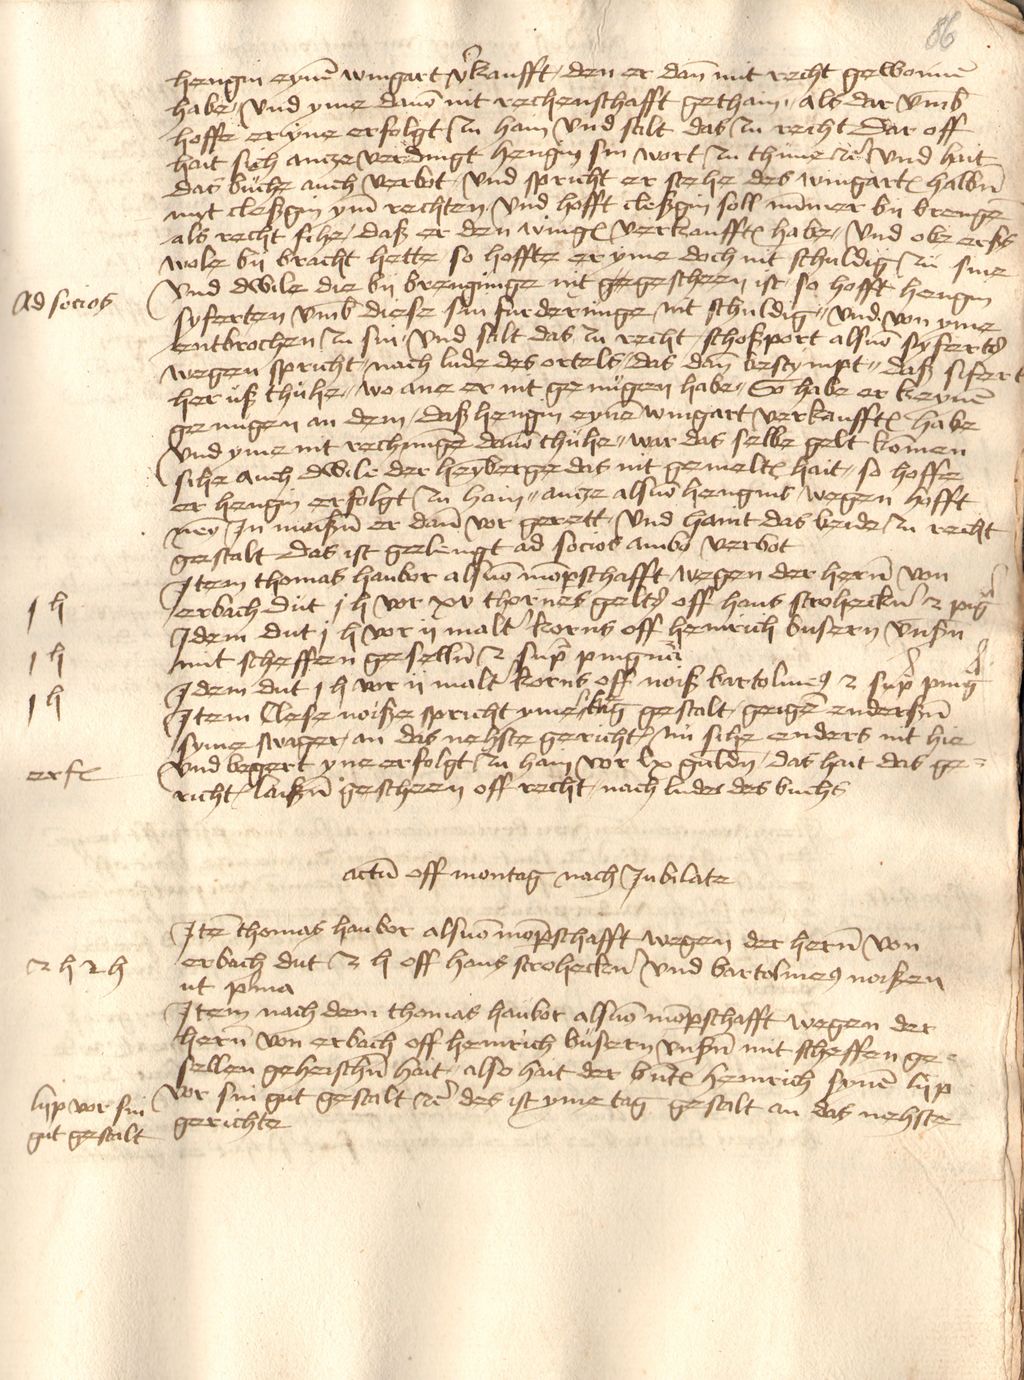 86
hengin eynē wingart v̓kaufft / den er dan̄ mit recht gewonnē
habe / vnd yme dauō nit rechenschafft gethain // als dar vmb
hoffe er yne erfolgt zu hain vnd stalt das zu recht dar off
hait sich ancze verdingt hengin sin wort zu thune ꝛc̓ vnd hait
das buche auch verbot / vnd spricht er stehe des wingartꝭ halbn̄
myt cleßgin ym̄ rechten / vnd hofft cleßgin soll nūmer bij brengē
als recht sihe / daß er den wingꝭ verkaufftꝭ habe // vnd obe erß
wole bij bracht hette / so hoffte er yme doch nit schuldig zu sine
vnd dwile die bij brengunge nit gescheen ist / so hofft hengin
Ad socios
syferten vmb diese sin furderunge nit schuldig // vnd von yme
entbrochen zu sin / vnd stalt das zu recht / schoßport alsuō syfertꝭ
wegen spricht / nach lude des ortels / das dan̄ bestympt // daß sifert
her uß thuhe // wo ane er nit genugen habe // So habe er keynē
genugen an dem / daß hengin eynē wingart verkaufftꝭ habe
vnd yme nit rechnūge dauō thuhe // war das selbe gelt komen
sihe auch dwile der heyberge das nit gemeltꝭ hait // so hoffe
er hengin erfolgt zu hain // ancze alsuō hengins wegen hofft
ney In maißn̄ er dan̄ vor gerett / vnd hant das beide zu recht
gestalt das ist gelengt ad socios ambo verbot
Item thomas haubor alsuō mo̅pschafft wegen der hern̄ von
1 h
erbach dut 1 h vor xv thornes geltꝭ off hans stroheckn̄ ꝛ pīḡ
Idem dut 1 h vor ij malt̓ korns off heinrich busern vnßn̄
1 h
mit scheffen geselln̄ ꝛ sup̄ pingnā
Idem dut 1 h vor ij malt̓ korns off noiß bartolmeꝯ ꝛ sup̄ pinḡ
1 h
Item Clese noiße spricht yme sij tag gestalt / geigē enderßn̄
syme swager / an das nehste gerichtꝭ / nū sihe enders nit hie
erfꝭ
vnd begert yne erfolgt zu hain vor lx guldn̄ / das hait das ge-
richtꝭ laißn̄ gescheen off recht / nach ludes des buchs
actū off montag nach Jubilate
Itē thomas haubor alsuō mo̅pschafft wegen der hern̄ von
2 h 2 h
erbach dut 2 h off hans stroheckn̄ vnd bartolmeꝯ noißen
ut p̄ma
Item nach dem thomas haubor alsuō mo̅pschafft wegen der
hern̄ von erbach off heinrich busern vnßn̄ mit scheffen ge-
sellen geheischn̄ hait / also hait der bn̄tꝭ heinrich synē lijp
lijp vor sin
gut gestalt
vor sin gut gestalt ꝛc̓ des ist yme tag gestalt an das nehste
gerichte